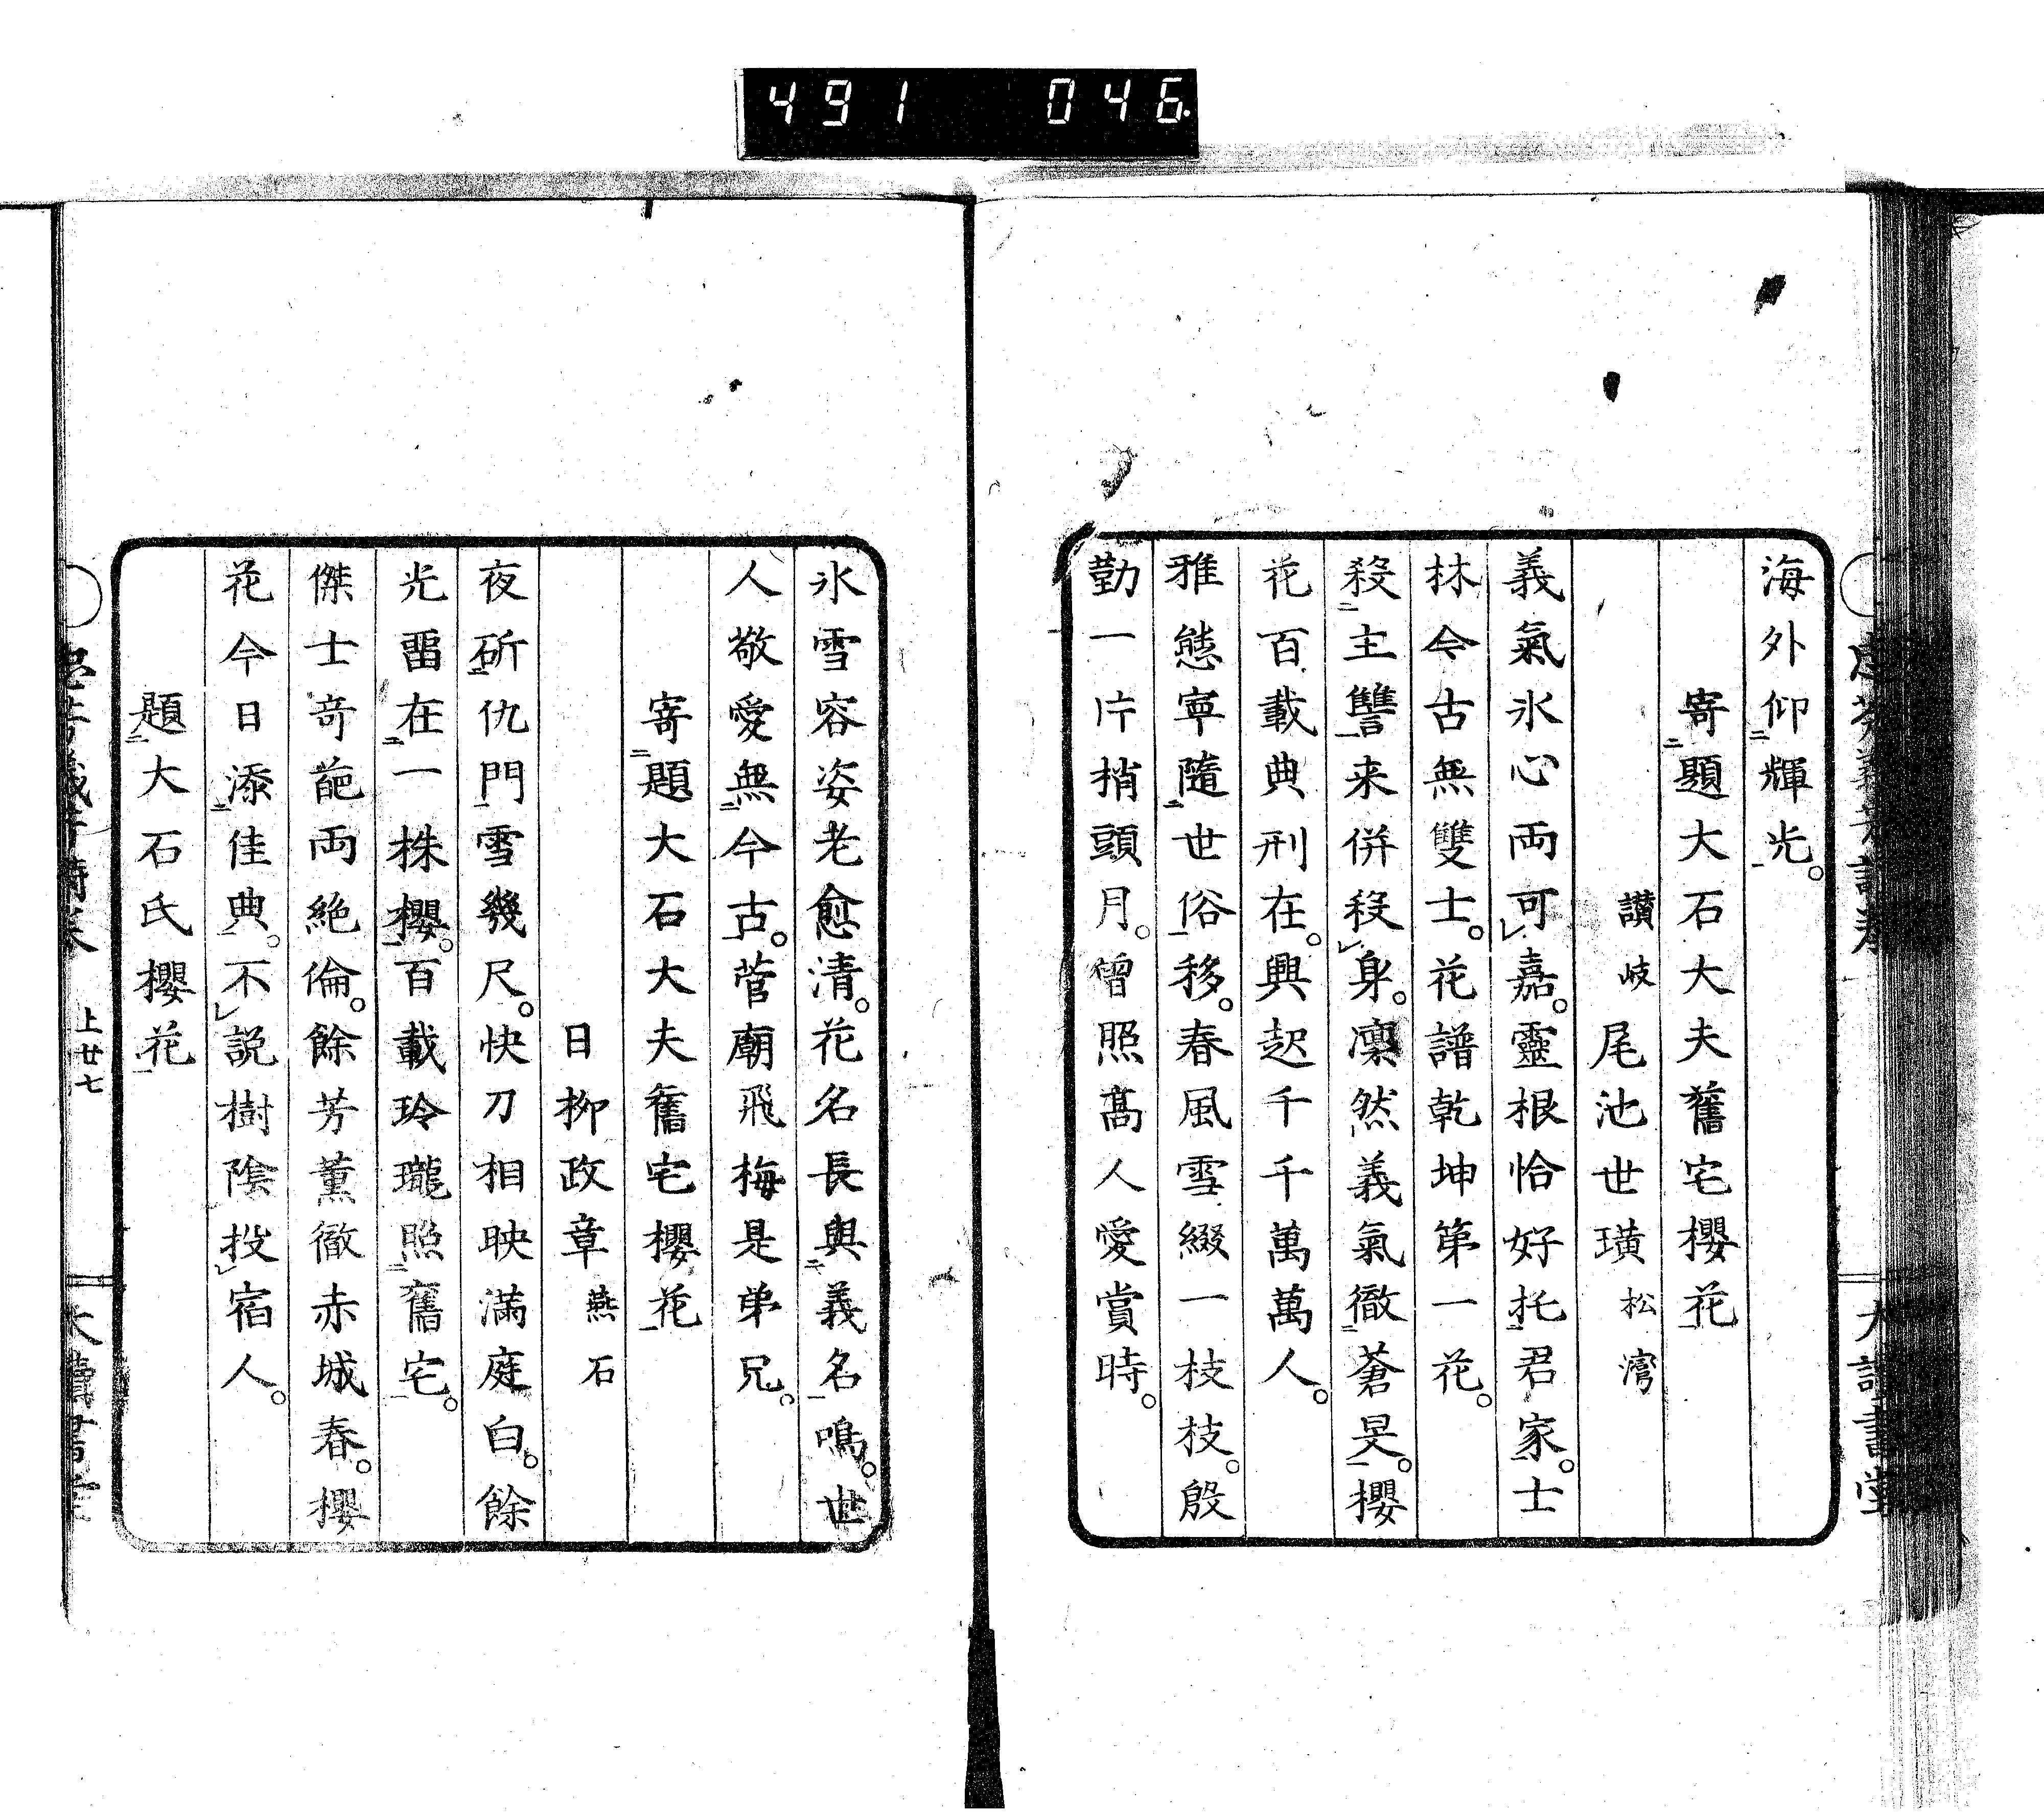 491 046
海外仰輝光。
寄題大石大夫舊宅櫻花
讃岐 尾池世璜 松灣
義氣氷心両可嘉。靈根恰好托君家。士
林今古無雙士。花譜乾坤第一花。
殺主讐来併殺身。凛然義氣徹蒼旻。櫻
花百載典刑在。興起千千萬萬人。
雅態寧隨世俗移。春風雪綴一枝枝。殷
勤一片梢頭月。曾照高人愛賞時。
氷雪容姿老愈清。花名長與義名鳴。世
人敬愛無今古。菅廟飛梅是弟兄。
寄題大石大夫舊宅櫻花
日柳政章 燕石
夜斫仇門雪幾尺。快刀相映滿庭白。餘
光畱在一株櫻。百載玲瓏照舊宅。
傑士奇葩両絶倫。餘芳薫徹赤城春。櫻
花今日添佳典。不説樹陰投宿人。
題大石氏櫻花
上廿七